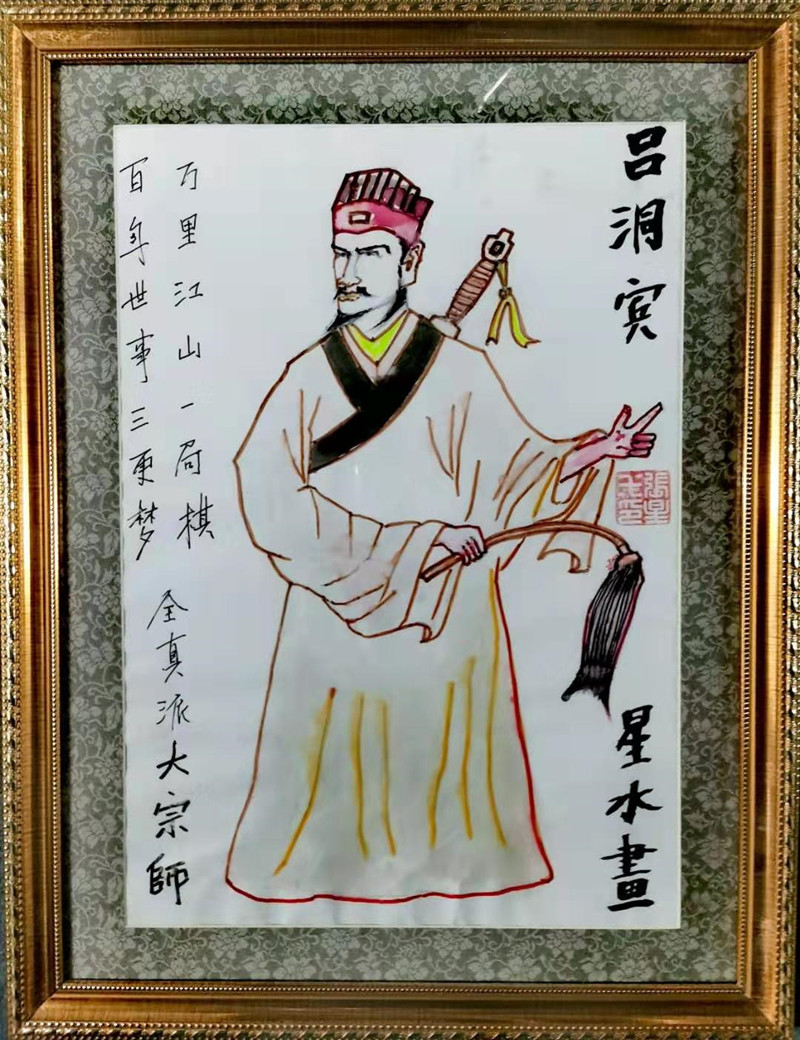 吕洞宾
万里江山一局棋
百年世事三更梦
全真派大宗師
星水畫